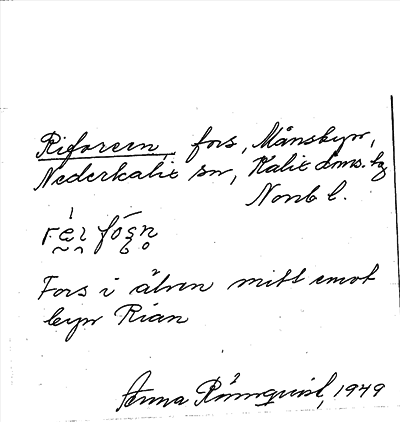 Riforsen, fors, Månsbyn,
Nederkalix sn, Kalix doms. tg
Norrb l.
Fors i älven mitt emot
byn Rian
Anna Rönnqvist, 1949